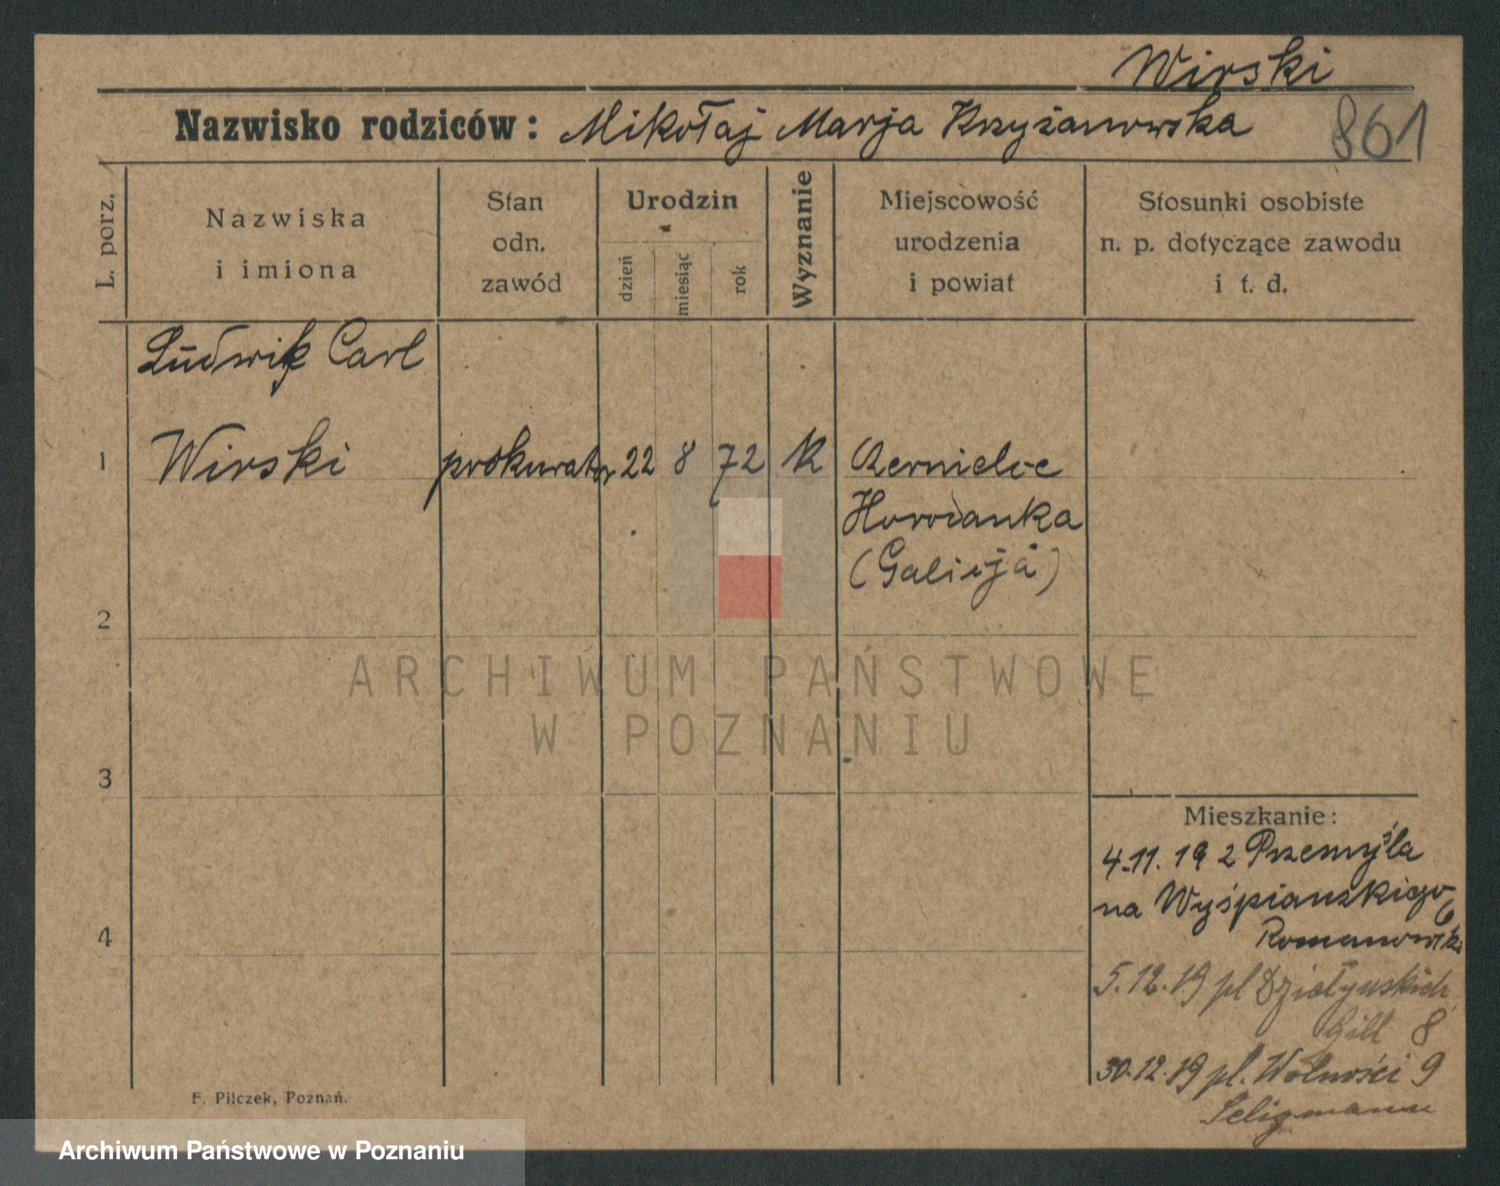 Wirski
Nazwisko rodziców: Mikołaj Marja Krzyżanowska 861
L. porz.
Nazwiska
i imiona
Stan
odn.
zawód
Urodzin
dzień
miesiąc
rok
Wyznanie
Miejscowość
urodzenia
i powiat
Stosunki osobiste
n. p. dotyczące zawodu
i t. d.
Ludwik Carl
1 Wirski prokurator 22 8 72 K
Horodanka
(Galicja)
2
3
4
Mieszkanie:
4.11.19 z Przemyśla
na Wyśpianskiego 6
5.12.19 pl Działyńskich
Gill 8
30.12.19 pl. Wolności 9
Seligmann
F. Pilczek, Poznań.
ARCHIWUM PAŃSTWOWE
W POZNANIU
Archiwum Państwowe w Poznaniu